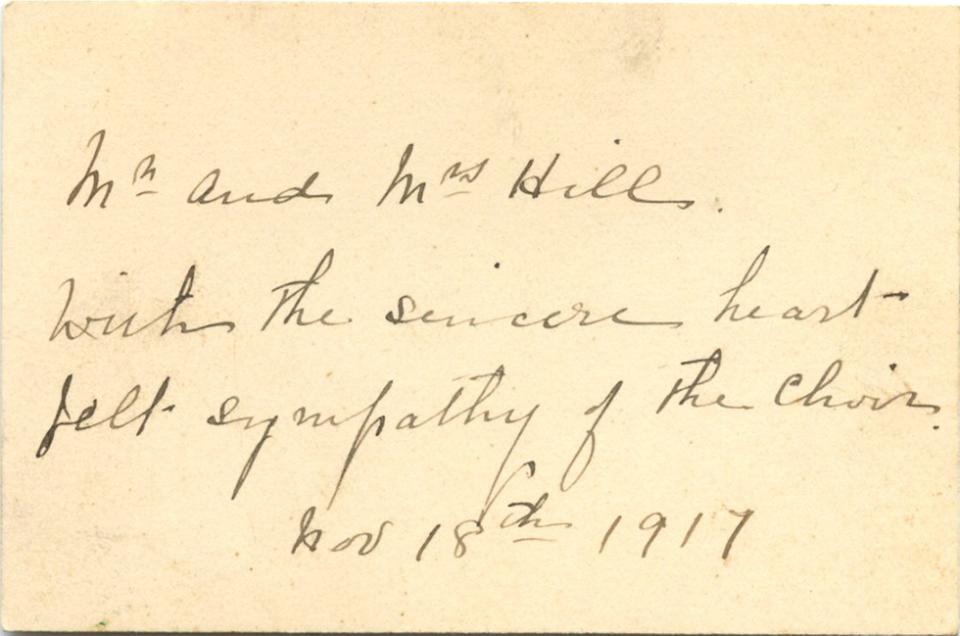 Mr and Mrs Hill.
With the sincere heart
felt sympathy of the Choir.
Nov 18th 1917